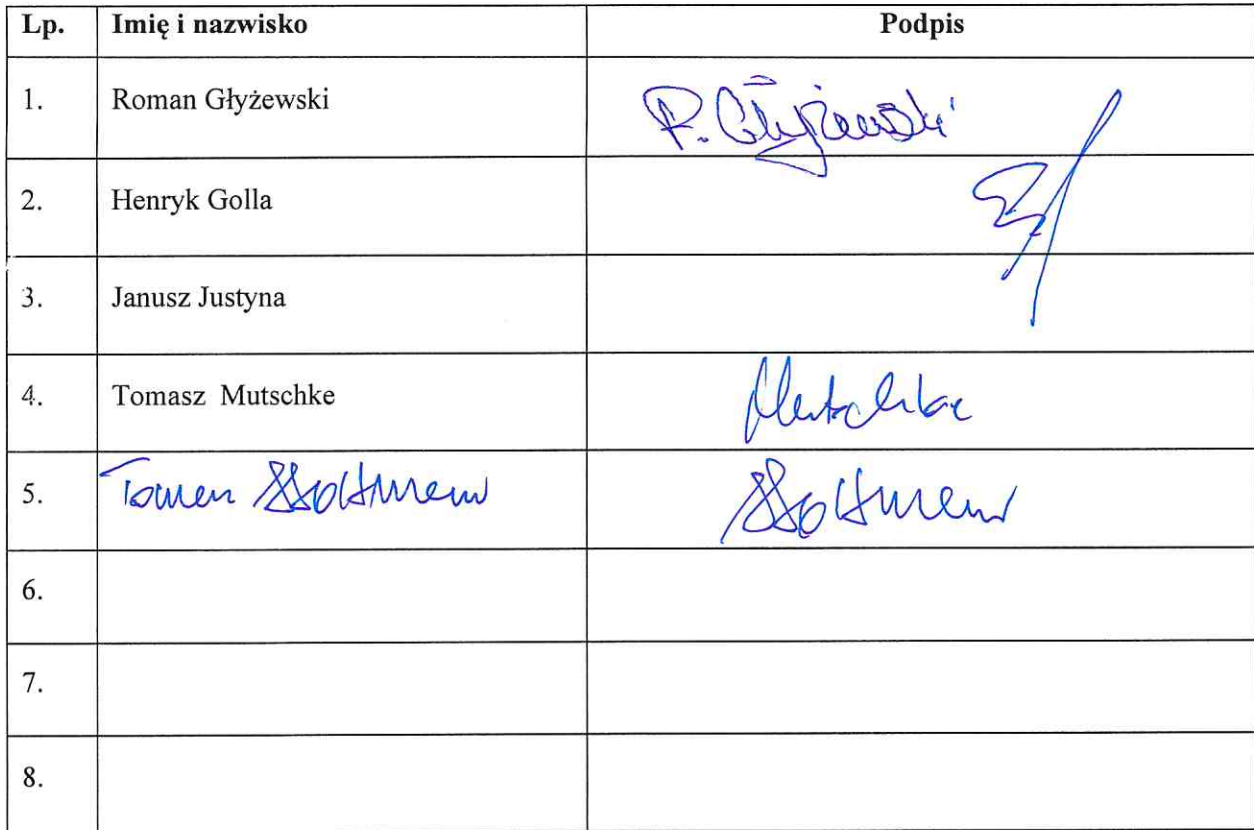 Lp. Imię i nazwisko Podpis
1. Roman Głyżewski R. Głyżewski
2. Henryk Golla
3. Janusz Justyna
4. Tomasz Mutschke Mutschke
5.
6.
7.
8.